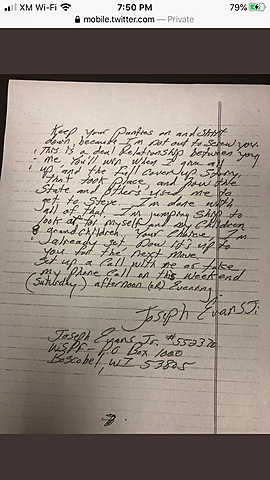 XM Wi-Fi 7:50 PM 79%
mobile.twitter.com — Private
Keep your Panties on and
down, because I'm not out to screw you.
This is a deal Relationship between you
me You'll win when I give all
up and the full cover up story,
that took place, and how the
State and others used me to
get to Steve. I'm done with
all of that. I'm jumping ship to
look out for myself and my children
& grand children. Your Choice. I'm
already set. Now it's up to
you for the next move.
Set up a call with me or take
my phone call on this weekend
(Saturday) afternoon (or) Evening
Joseph Evans Jr.
Joseph Evans Jr. #552370
WSPF- P.O. Box 1000
Boscobel, WI 53805